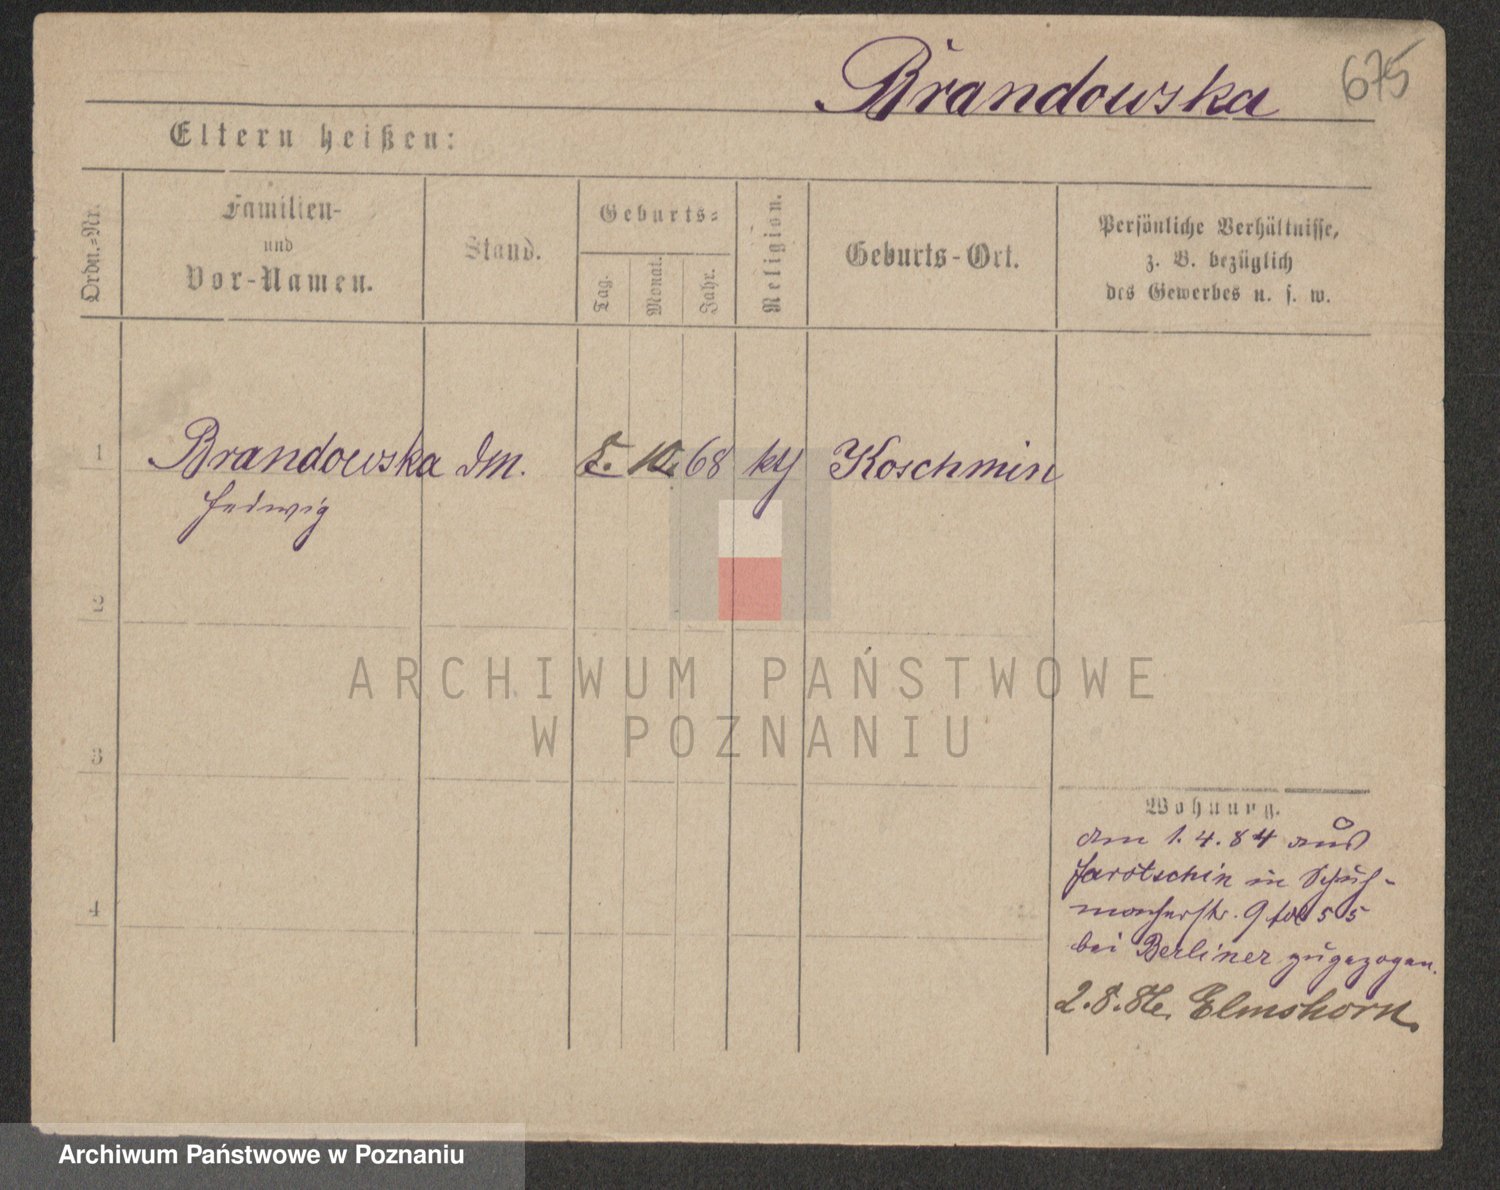 Brandowska 675
Eltern heißen:
Ordn.=Nr.
Familien-
und
Vor-Namen.
Stand.
Geburts=
Tag.
Monat.
Jahr.
Religion.
Geburts-Ort.
Persönliche Verhältnisse,
z. B. bezüglich
des Gewerbes u. s. w.
1 Brandowska dm. 8. 10. 68 kth Koschmin
Hedwig
2
3
4
Wohnung.
am 1.4.84 aus
Jarotschin in Schuh-
macherstr. 9 55
bei Berliner zugezogen.
2.8.86. Elmshorn.
ARCHIWUM PAŃSTWOWE
W POZNANIU
Archiwum Państwowe w Poznaniu